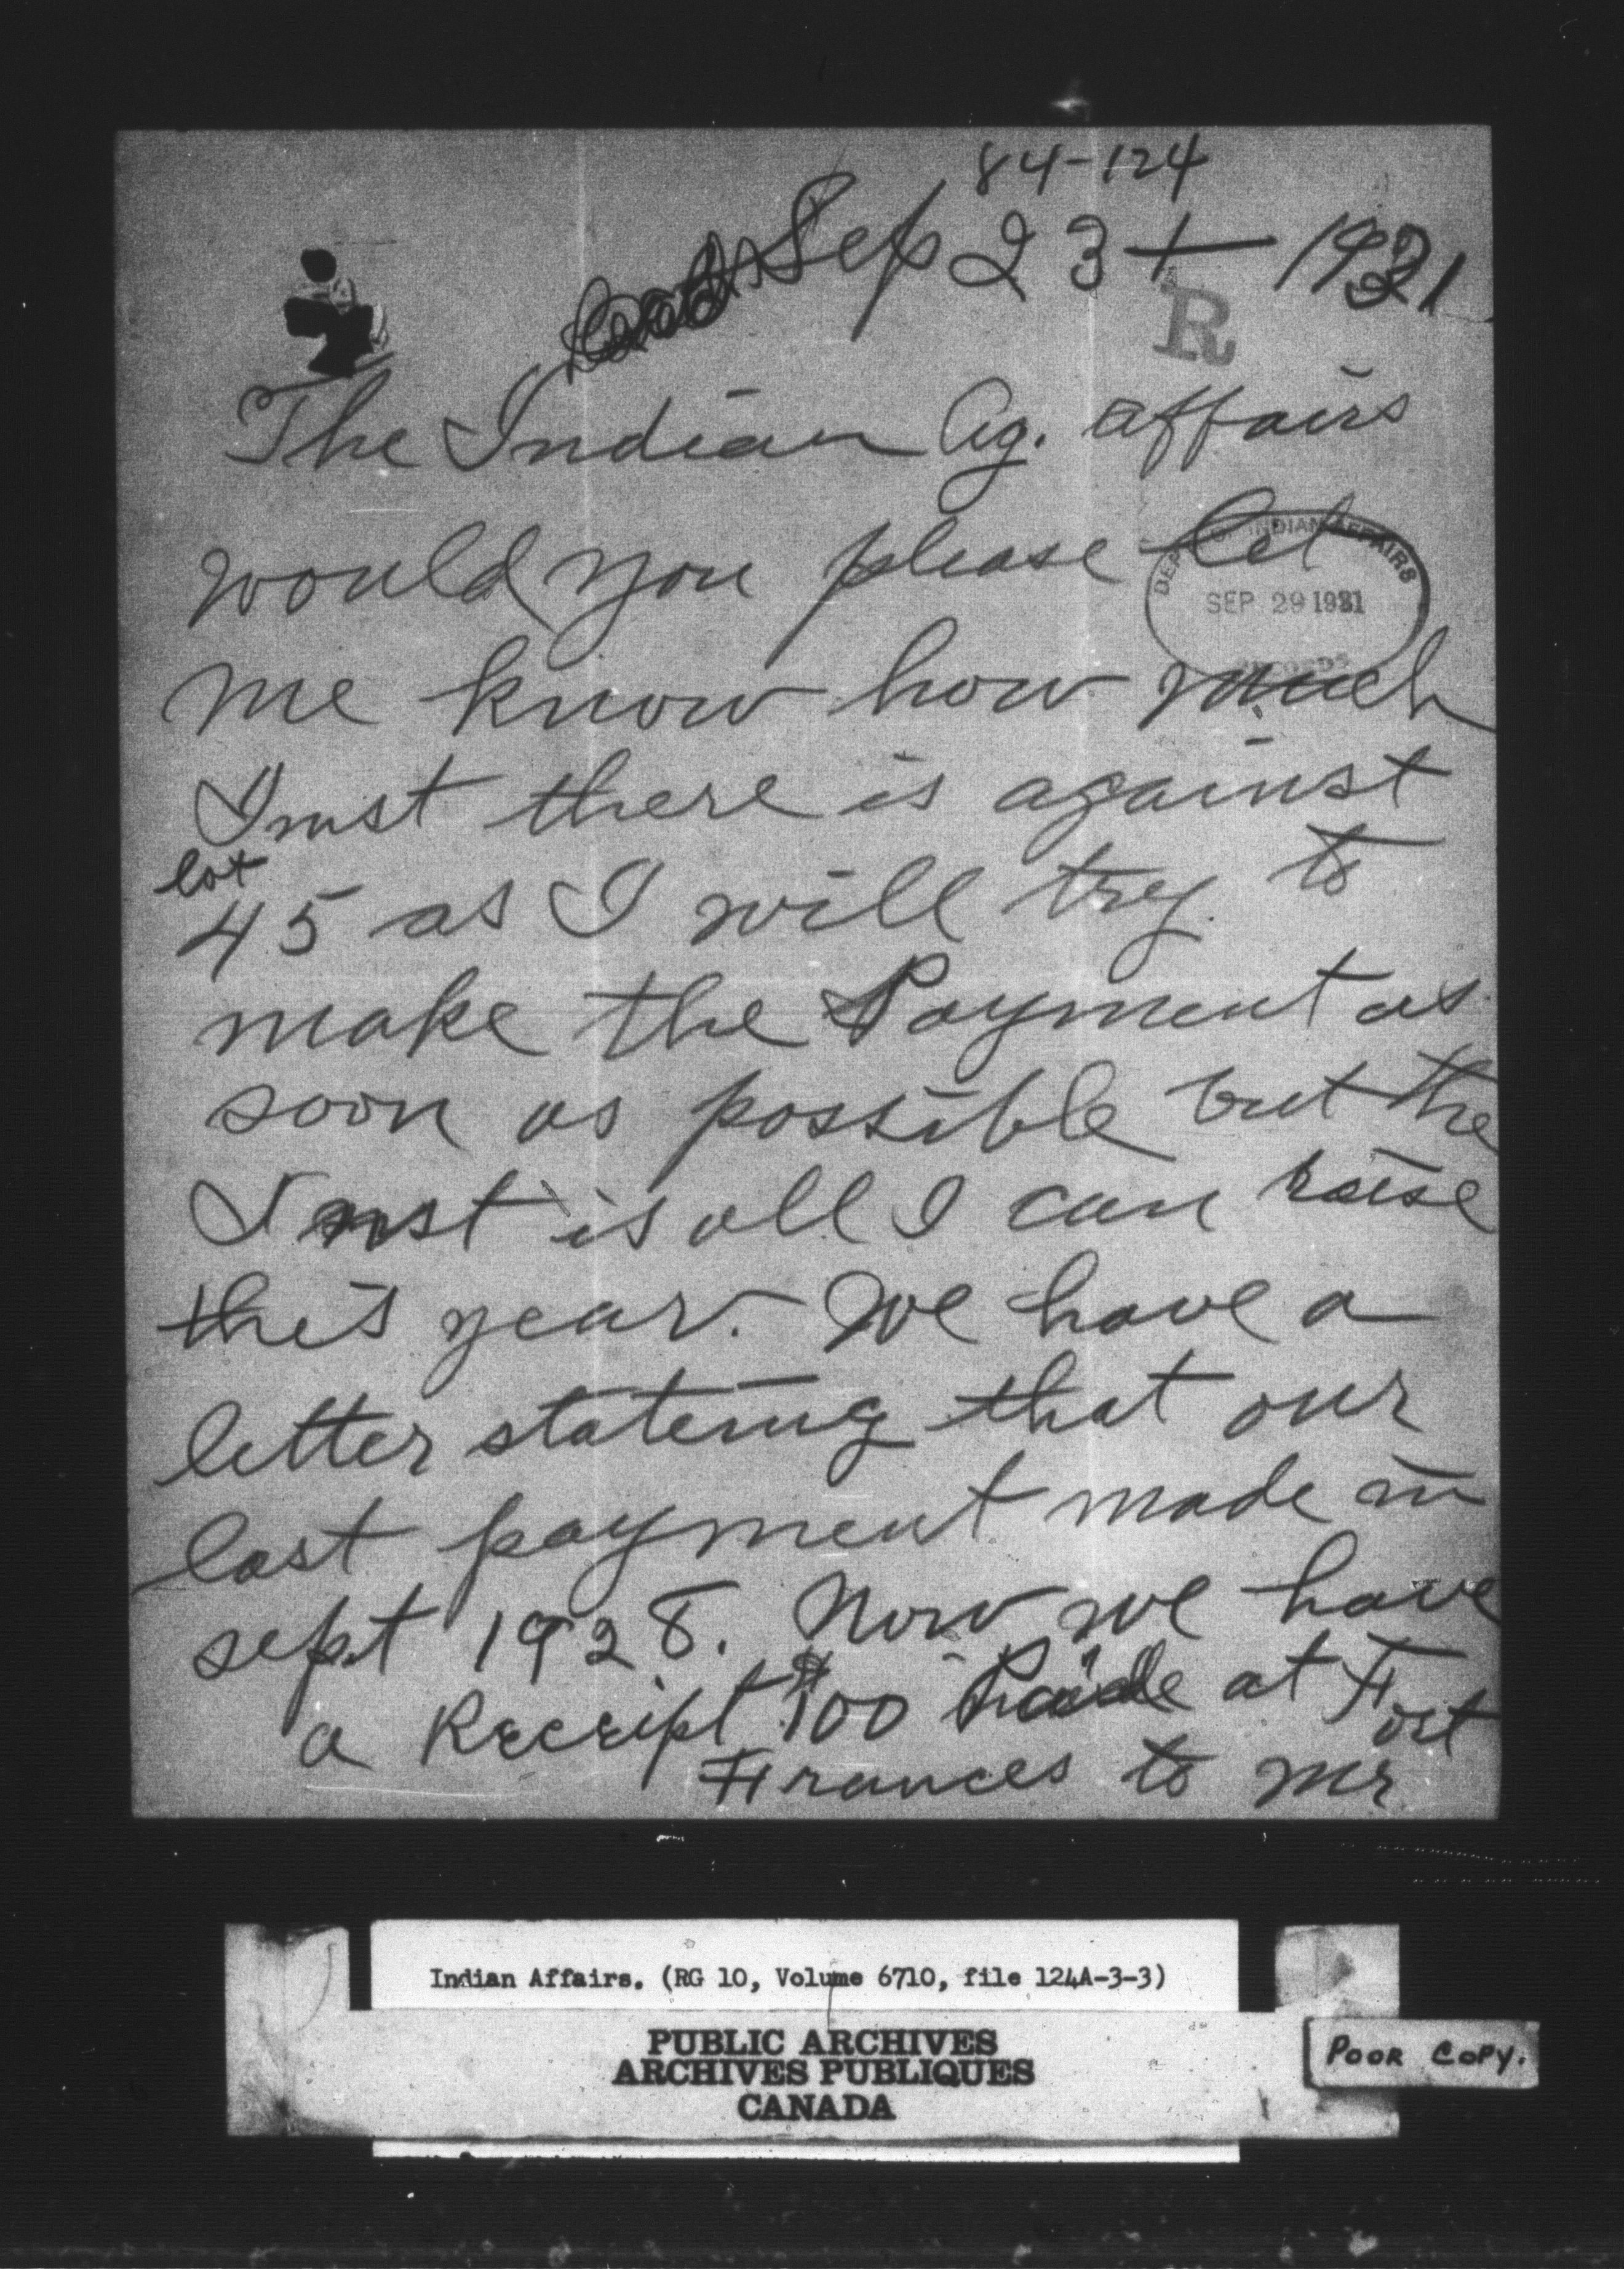 84-124
Sep 23+ 1931
R
The Indian Ag. affairs
would you please let
DEPT OF INDIAN AFFAIRS
SEP 29 1931
RECORDS
me know how much
Inst there is against
lot
45 as I will try to
make the Payment as
soon as possible but the
Inst is all I can raise
this year. We have a
letter stating that our
last payment made in
sept 1928. Now we have
a Receipt $100 Paide at Fort
Frances to mr
Indian Affairs. (RG 10, Volume 6710, file 124A-3-3)
PUBLIC ARCHIVES
ARCHIVES PUBLIQUES
CANADA
POOR COPY.